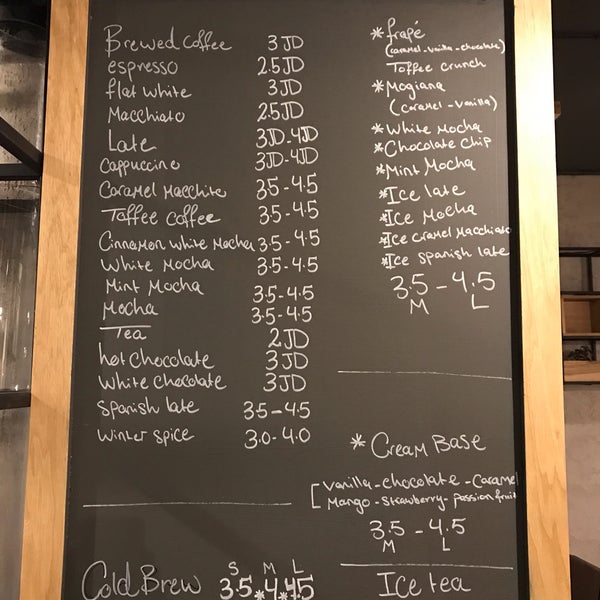 Brewed Coffee 3JD
espresso 2.5JD
flat white 3JD
Macchiato 2.5JD
Late 3JD-4JD
Cappuccino 3JD-4JD
Caramel Macchite 3.5-4.5
Toffee Coffee 3.5-4.5
Cinnamon white Mocha 3.5-4.5
White Mocha 3.5-4.5
Mint Mocha 3.5-4.5
Mocha 3.5-4.5
Tea 2JD
hot chocolate 3JD
White chocolate 3JD
Spanish late 3.5-4.5
Winter spice 3.0-4.0
Cold Brew S M L
3.5*4*4.5
*frapé
(caramel-vanilla-chocolate)
Toffee crunch
*Mogiana
(caramel-vanilla)
*White Mocha
*Chocolate Chip
*Mint Mocha
*Ice late
*Ice Mocha
*Ice Cramel Macchiato
*Ice spanish late
3.5-4.5
M L
*Cream Base
[Vanilla-chocolate-Caramel
Mango-Strawberry-passion fruit
3.5-4.5
M L
Ice tea